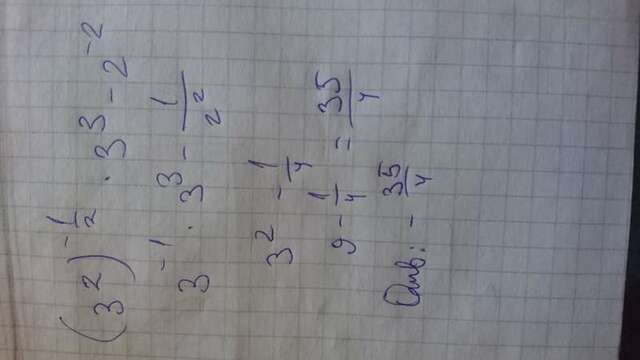 (3²)^(-1/2) · 3³ - 2⁻²
3⁻¹ · 3³ - 1/2²
3² - 1/4
9 - 1/4 = 35/4
Отв: - 35/4